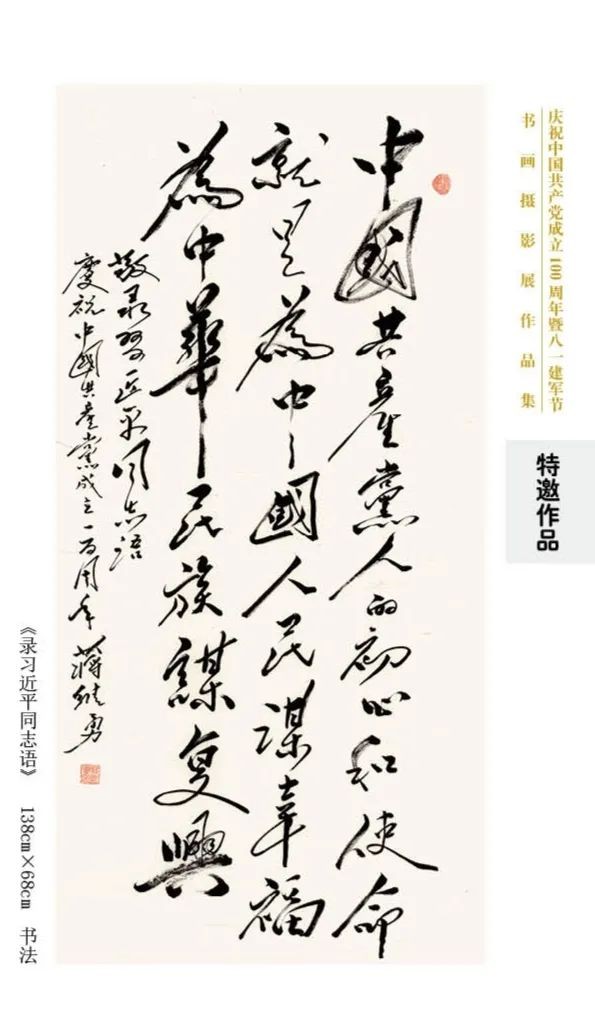 庆祝中国共产党成立100周年暨八一建军节
书画摄影展作品集
特邀作品
中國共產黨人的初心和使命
就是為中國人民謀幸福
為中華民族謀复興
敬录习近平同志语
慶祝中國共產黨成立一百周年 蒋继勇
《录习近平同志语》 138cm×68cm 书法